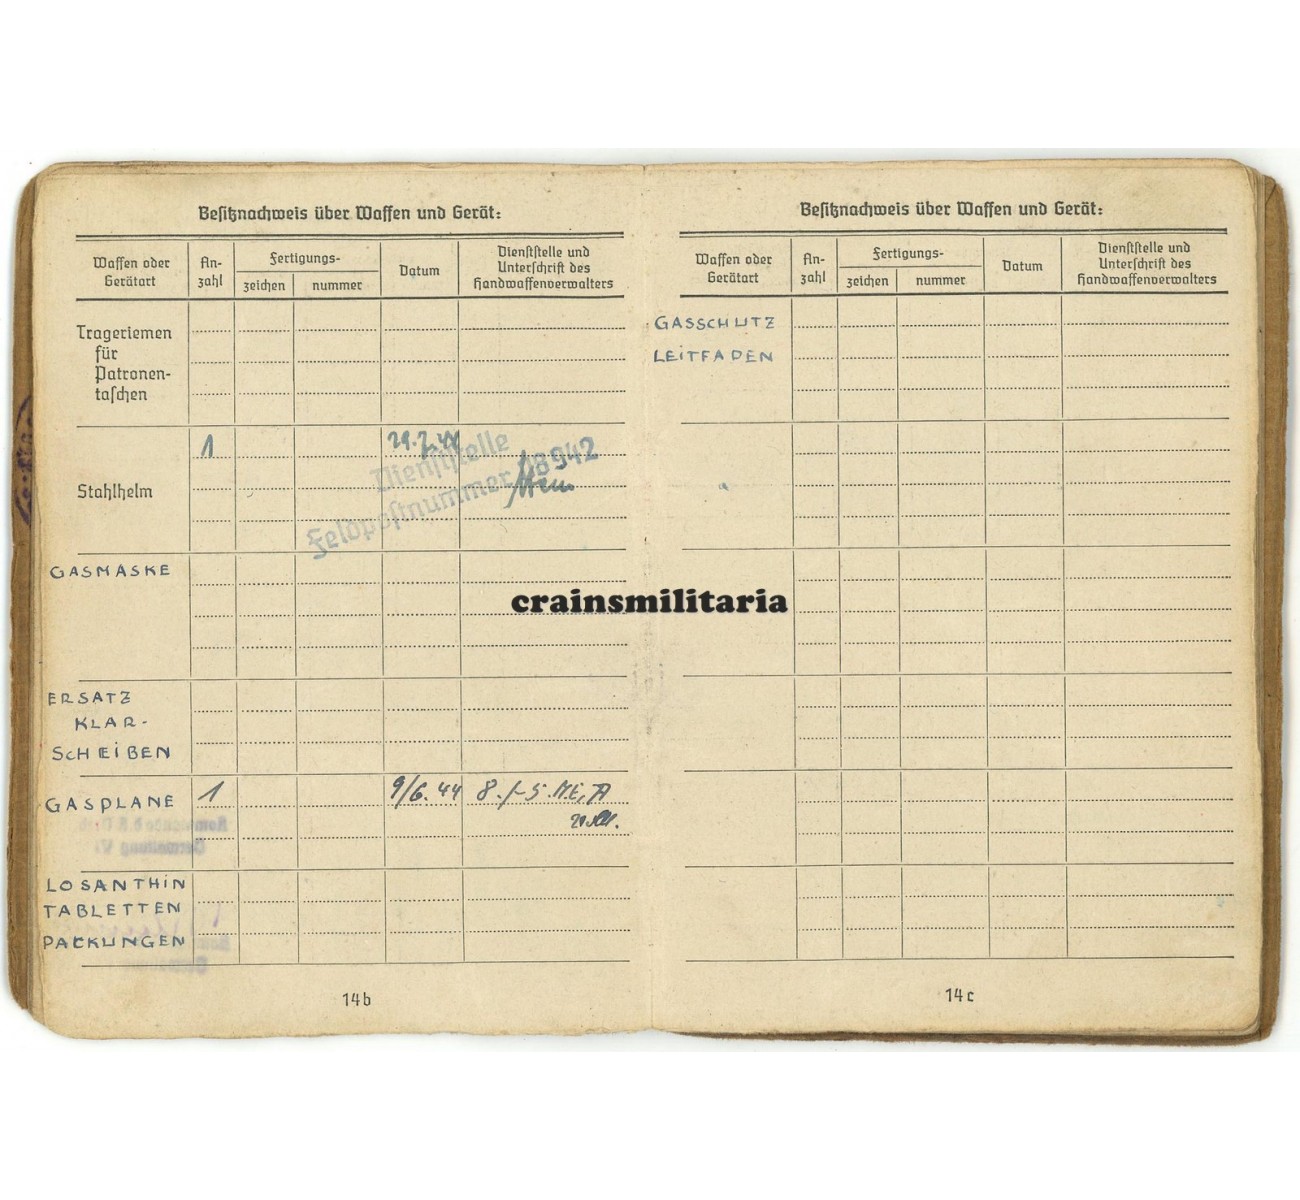 Besitznachweis über Waffen und Gerät:
Waffen oder Gerätart
An-zahl
Fertigungs-
zeichen
nummer
Datum
Dienststelle und Unterschrift des Handwaffenverwalters
Trageriemen
für
Patronen-
taschen
Stahlhelm
1
Dienststelle
Feldpostnummer 08942
GASMASKE
ERSATZ
KLAR-
SCHEIBEN
GASPLANE
1
9/6.44
LOSANTHIN
TABLETTEN
PACKUNGEN
14b
Besitznachweis über Waffen und Gerät:
Waffen oder Gerätart
An-zahl
Fertigungs-
zeichen
nummer
Datum
Dienststelle und Unterschrift des Handwaffenverwalters
GASSCHUTZ
LEITFADEN
14c
crainsmilitaria